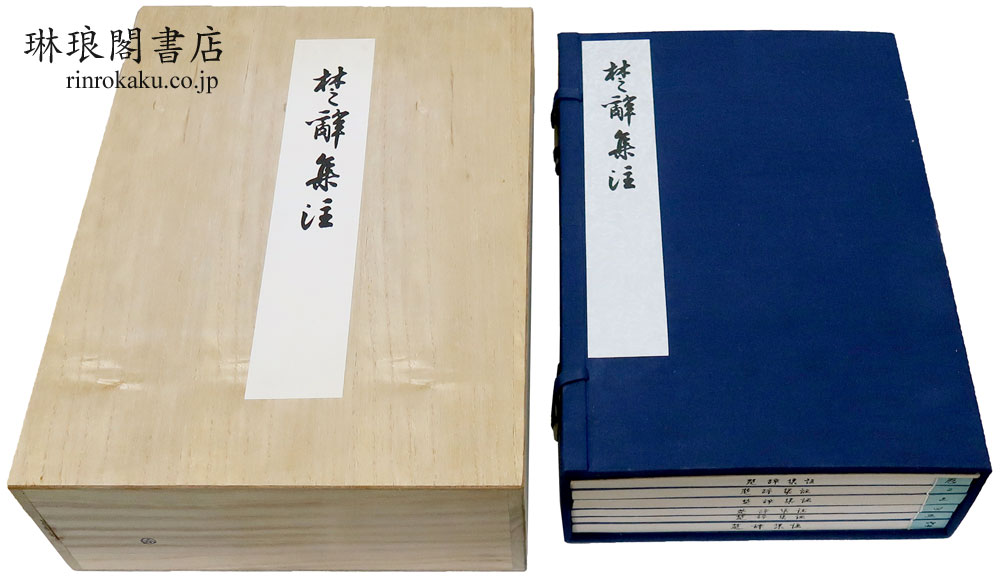 琳琅閣書店
rinrokaku.co.jp
楚辭集注
楚辭集注
楚辭集註
楚辭集註
楚辭集註
楚辭集註
楚辭集註
楚辭集註